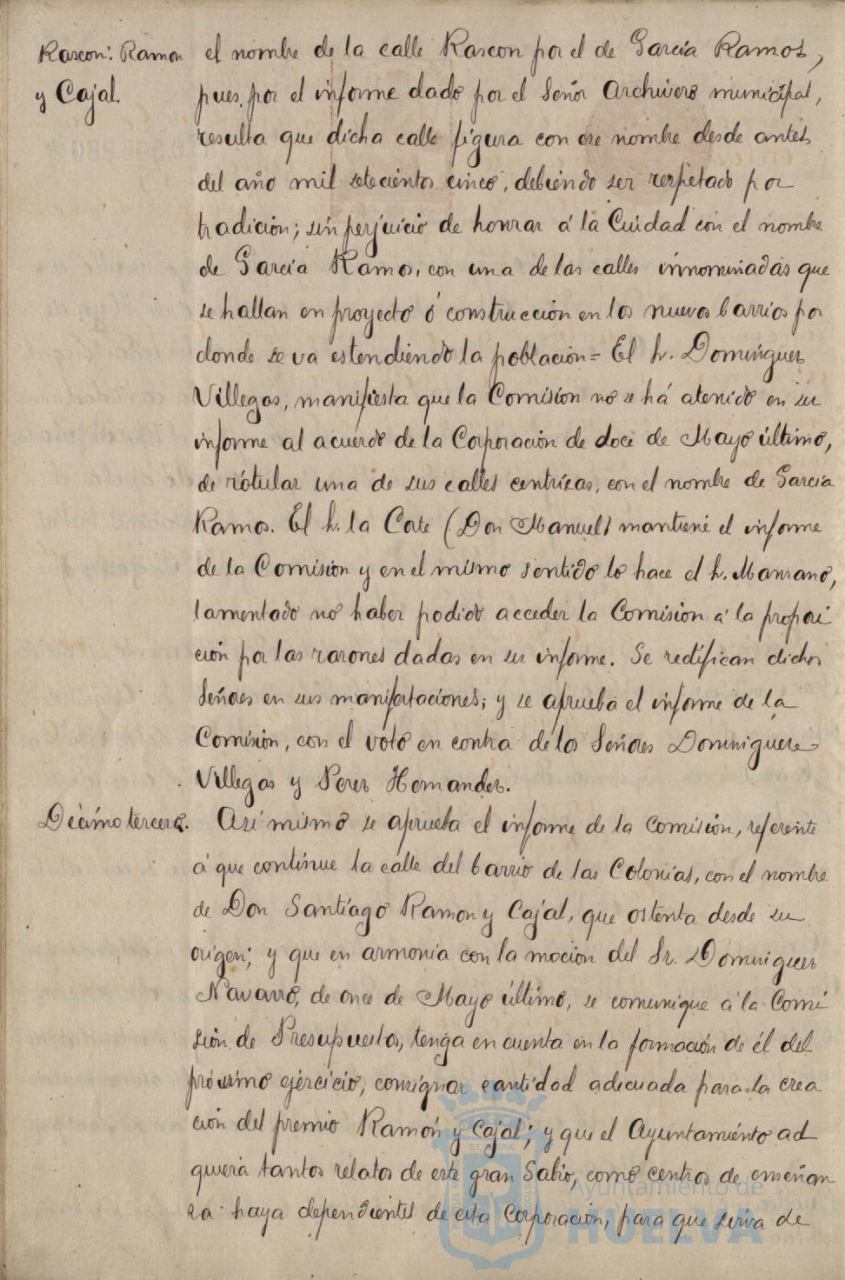 Rascon: Ramon
y Cajal.
el nombre de la calle Rascon por el de García Ramos,
pues por el informe dado por el Señor Archivero municipal,
resulta que dicha calle figura con ese nombre desde antes
del año mil setecientos cinco, debiendo ser respetado por
tradición; sin perjuicio de honrar á la Cuidad con el nombre
de García Ramos, con una de las calles innominadas que
se hallan en proyecto ó construcción en los nuevos barrios por
donde se va estendiendo la población= El Sr. Domínguez
Villegas, manifiesta que la Comisión no se há atenido en su
informe al acuerdo de la Corporación de doce de Mayo último,
de rótular una de sus calles centricas, con el nombre de García
Ramos. El Sr. la Corte (Don Manuel) mantiene el informe
de la Comisión y en el mismo sentido lo hace el Sr. Manzano,
lamentado no haber podido acceder la Comisión á la proposi
ción por las razones dadas en su informe. Se rectifican dichos
Señores en sus manifestaciones; y se aprueba el informe de la
Comisión, con el voto en contra de los Señores Dominguez
Villegas y Perez Hernandez.
Décimo tercero. Así mismo se aprueba el informe de la Comisión, referente
á que continue la calle del barrio de las Colonias, con el nombre
de Don Santiago Ramon y Cajal, que ostenta desde su
origen; y que en armonia con la moción del Sr. Dominguez
Navarro, de once de Mayo último, se comunique á la Comi
sión de Presupuestos, tenga en cuenta en la formación de él del
próximo ejercicio, consignar cantidad adecuada para la crea
ción del premio Ramón y Cajal; y que el Ayuntamiento ad
quiera tantos relatos de este gran Sabio, como centros de enseñan
za haya dependientes de esta Corporación, para que sirva de
Ayuntamiento de
HUELVA